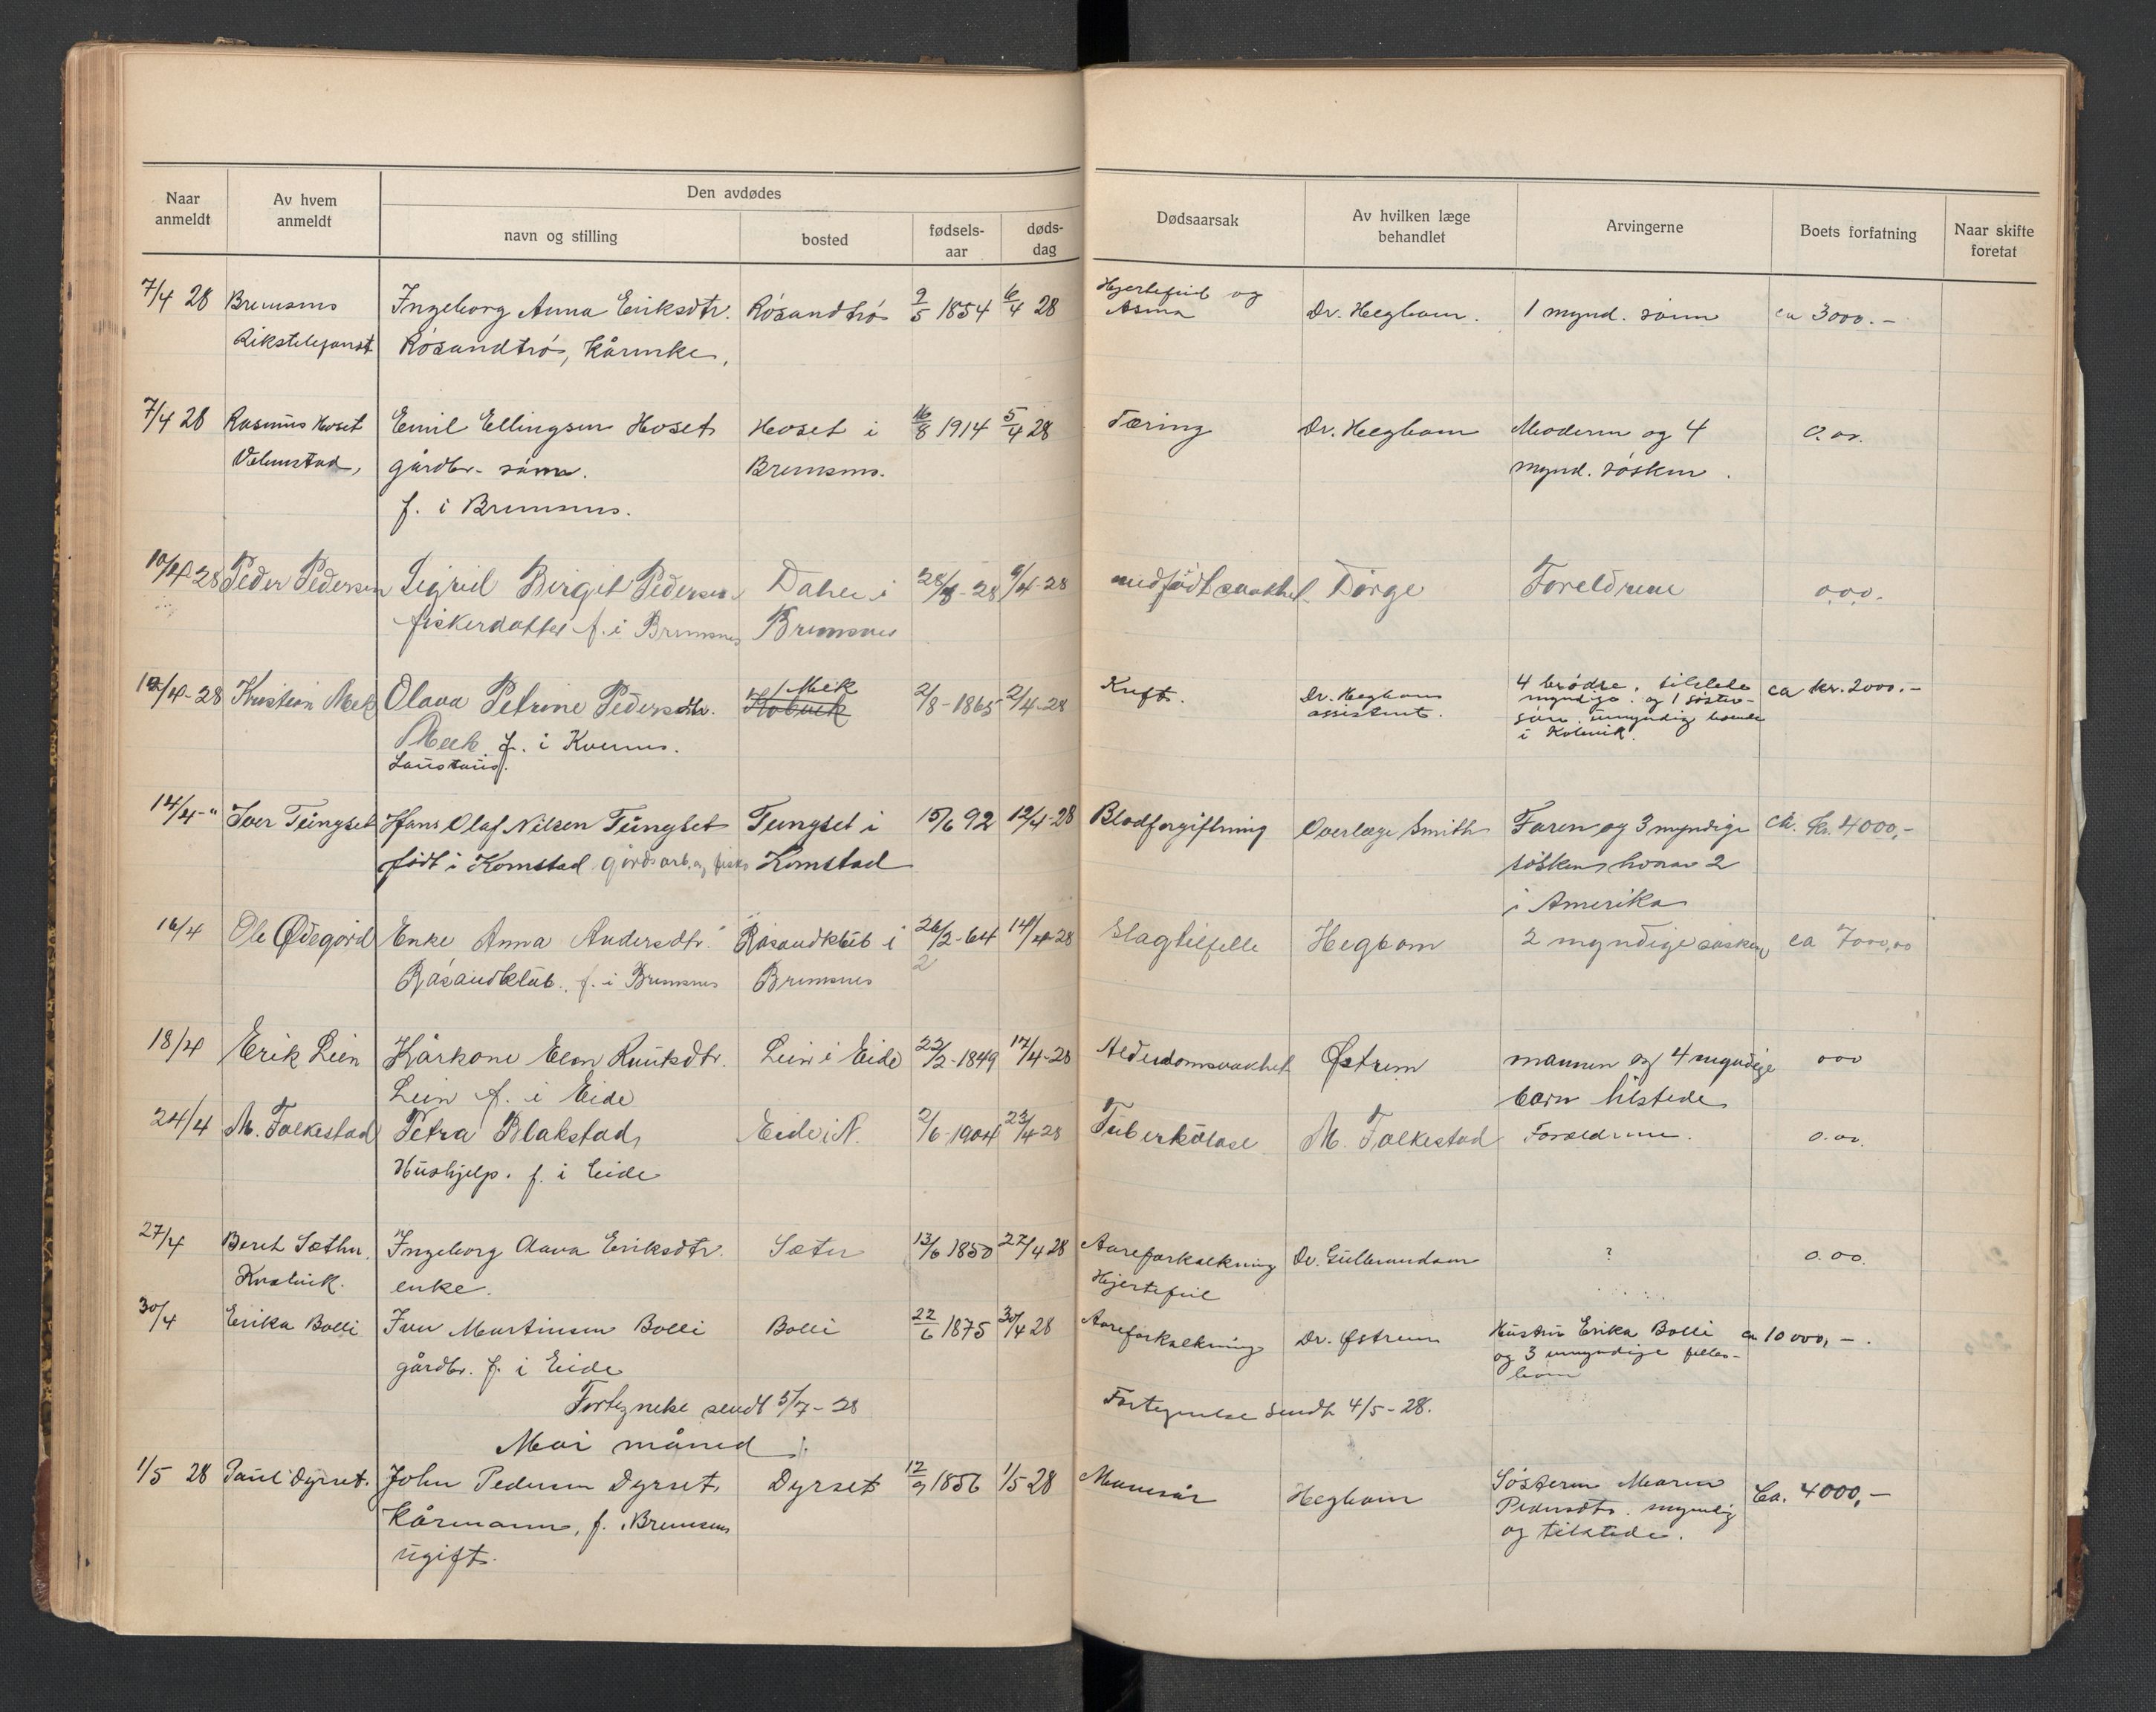 Naar anmeldt | Av hvem anmeldt | Den avdødes | Dødsaarsak | Av hvilken læge behandlet | Arvingerne | Boets forfatning | Naar skifte foretat
navn og stilling | bosted | fødsels-aar | døds-dag
7/4 28 | Bremsnes | Ingeborg Anna Eriksdtr. | Røsandtrø | 9/5 1854 | 6/4 28 | Hjertefeil og | Dr. Hegbom. | 1 mynd. sønn | ca 3000.-
Rikstelefonst | Røsandtrø, Kårenke, | Asma
7/4 28 | Rasmus Hoset | Emil Ellingsen Hoset | Hoset i | 16/8 1914 | 5/4 28 | Tæring | Dr. Hegbom | Moderen og 4 | 0.00.
gårdbr. sønn. | Bremsnes. | mynd. søsken.
f. i Bremsnes.
10/4 28 | Peder Pedersen | Sigrid Birgit Pedersen | Dahle i | 9/4-28 | medfødt svakhet | Dørge | Foreldrene | 0.0.0.
fiskerdatter f. i Bremsnes | Bremsnes
12/4-28 | Kristian Mek | Olava Petrine Pedersdtr. | Mek | 2/8-1865 | 2/4-28 | Kreft. | Dr. Hegboms | 4 brødre, tilstede | ca kr. 2000.-
Meek f. i Kvernes. | assistent. | myndige. og 1 søster-
sønn umyndig boende
i Kolvik.
14/4-" | Iver Tungset | Hans Olaf Nilsen Tungset | Tungset i | 15/6 92 | 12/4-28 | Blodforgiftning | Overlæge Smith | Faren og 3 myndige | ca. kr. 4000,-
født i Kornstad gårdsarb. og fisker | Kornstad | søsken hvorav 2
i Amerika
16/4 | Ole Ødegård | Enke Anna Andersdtr. | Røsandkleb i | 26/2-64 | 14/4-28 | Slagtilfelle | Hegbom | 2 myndige søsken | ca 7000,00
2
Røsandkleb. f. i Bremsnes | Bremsnes
18/4 | Erik Lien | Kårkone Elen Knutsdtr. | Lien i Eide | 22/2-1849 | 17/4-28 | Alderdomsvakhet | Østrem | mannen og 4 myndige | 000
Lien f. i Eide | barn tilstede
24/4 | M. Folkestad | Petra Blakstad | Eide i N. | 2/6-1904 | 23/4-28 | Tuberkulose | M. Folkestad | Foreldrene. | 0.00.
Hushjelp. f. i Eide
27/4 | Beret Sæther. | Ingeborg Anna Eriksdtr. | Sæter | 13/6 1850 | 27/4 28 | Aareforkalkning | Dr. Gulbrandsen | ? | 0.00.
enke. | Hjertefeil
30/4 | Erika Bolli | Iver Martinsen Bolli | Bolli | 22/6 1875 | 30/4 28 | Aareforkalkning | Dr. Østrem | Hustru Erika Bolli | ca 10000,-.
gårdbr. f. i Eide | og 3 umyndige felles-
barn
Fortegnelse sendt 5/7-28 | Fortegnelse sendt 4/5-28.
Mai måned
1/5 28 | Paul Dyrset. | John Pedersen Dyrset | Dyrset | 12/9 1856 | 1/5 28 | Mavesår | Hegbom | Søsteren Maren | Ca. 4000,-
Kårmann, f. i Bremsnes | Pedersdtr. myndig
ugift. | og tilstede.